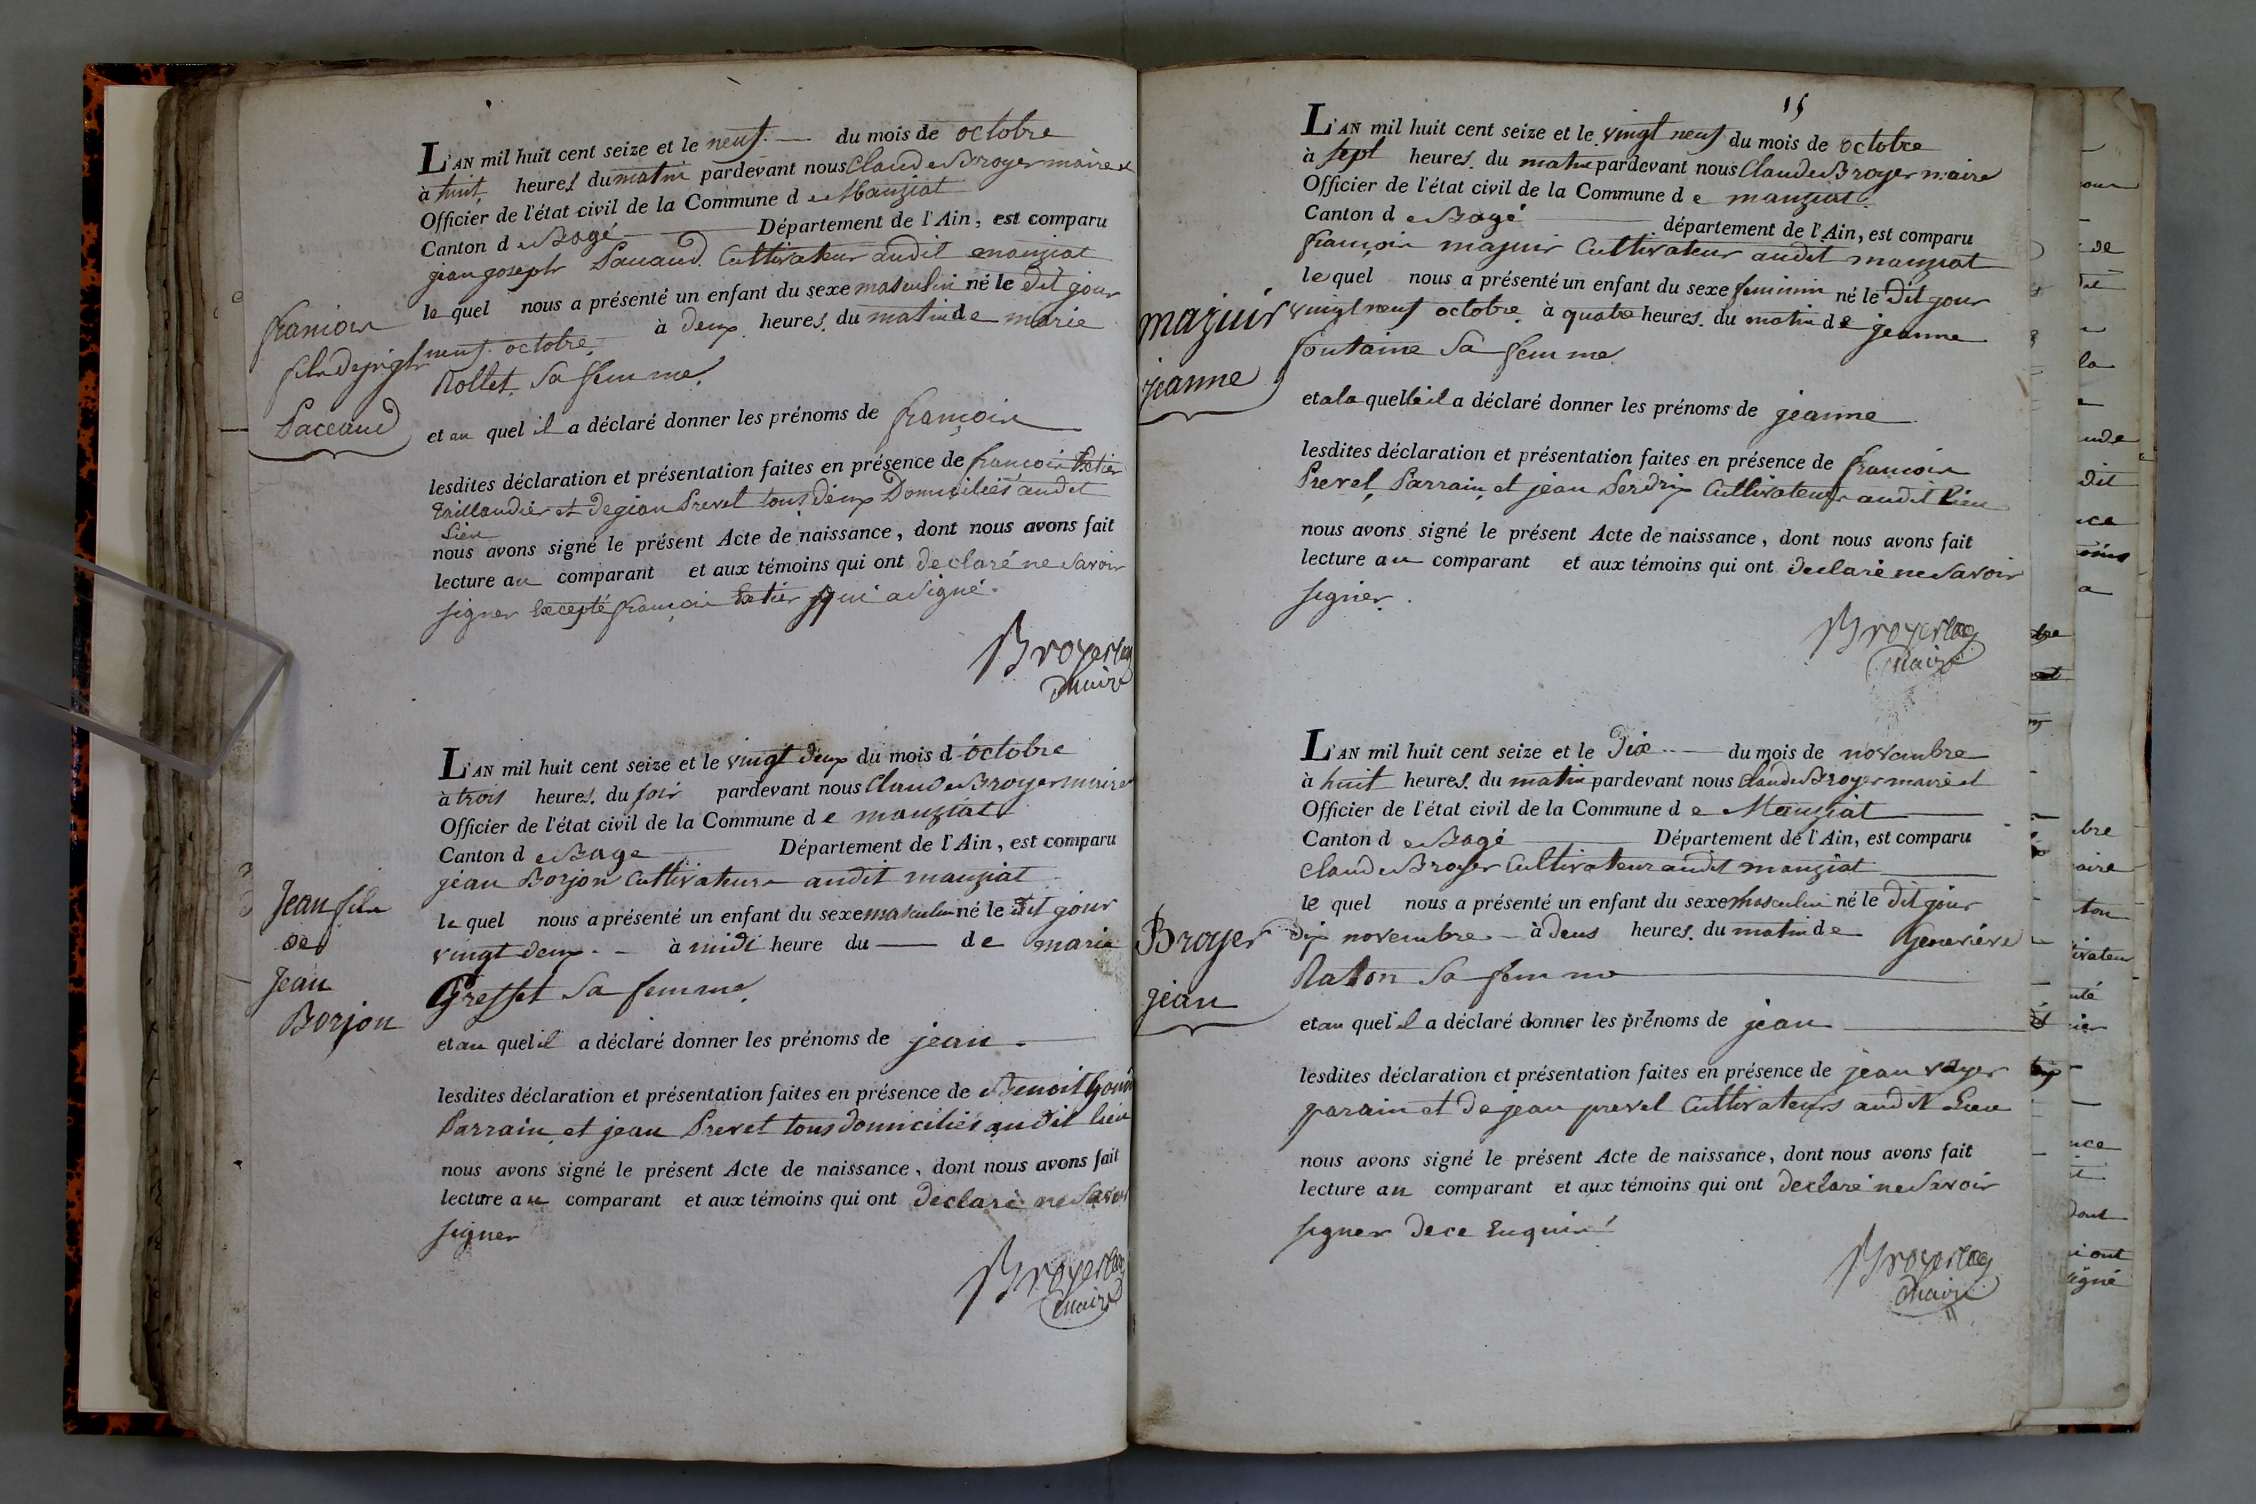 L'AN mil huit cent seize et le neuf du mois de octobre
à huit heures du matin pardevant nous Claude Broyer maire et
Officier de l'état civil de la Commune de Manziat
Canton de Bagé Département de l'Ain, est comparu
jean joseph Paccaud Cultivateur audit manziat
lequel nous a présenté un enfant du sexe masculin né le dit jour
neuf octobre à deux heures du matin de marie
Rollet sa femme
et au quel il a déclaré donner les prénoms de françois
lesdites déclaration et présentation faites en présence de françois
taillandier et de jean Prevet tous deux Domiciliés audit
Lieu
nous avons signé le présent Acte de naissance, dont nous avons fait
lecture au comparant et aux témoins qui ont declaré ne savoir
signer Excepté françois qui a signé.
Broyer
Maire
françois
fils de
Paccaud
L'AN mil huit cent seize et le vingt deux du mois d'octobre
à trois heures du soir pardevant nous Claude Broyer maire
Officier de l'état civil de la Commune de manziat
Canton de Bage Département de l'Ain, est comparu
jean Borjon Cultivateur audit manziat
le quel nous a présenté un enfant du sexe masculin né le dit jour
vingt deux à midi heure du de marie
Gresset sa femme
et au quel il a déclaré donner les prénoms de jean
lesdites déclaration et présentation faites en présence de Benoit
Parrain et jean Prevet tous domiciliés au dit lieu
nous avons signé le présent Acte de naissance, dont nous avons fait
lecture au comparant et aux témoins qui ont declaré ne savoir
signer
Broyer
Maire
Jean fils
de
Jean
Borjon
15
L'AN mil huit cent seize et le vingt neuf du mois de octobre
à sept heures du matin pardevant nous Claude Broyer maire
Officier de l'état civil de la Commune de manziat
Canton de Bagé département de l'Ain, est comparu
françois mazuir Cultivateur audit manziat
le quel nous a présenté un enfant du sexe feminin né le dit jour
vingt neuf octobre à quatre heures du matin de jeanne
fontaine sa femme
et a la quelle il a déclaré donner les prénoms de jeanne
lesdites déclaration et présentation faites en présence de françois
Prevet, Parrain, et jean Perdrix Cultivateurs audit Lieu
nous avons signé le présent Acte de naissance, dont nous avons fait
lecture au comparant et aux témoins qui ont declaré ne savoir
signer.
Broyer
Maire
mazuir
jeanne
L'AN mil huit cent seize et le Dix du mois de novembre
à huit heures du matin pardevant nous Claude Broyer maire et
Officier de l'état civil de la Commune de Manziat
Canton de Bagé Département de l'Ain, est comparu
Claude Broyer Cultivateur audit manziat
le quel nous a présenté un enfant du sexe masculin né le dit jour
dix novembre à deus heures du matin de Genevieve
Raton sa femme
et au quel il a déclaré donner les prénoms de jean
lesdites déclaration et présentation faites en présence de jean
parain et de jean prevel Cultivateurs audit Lieu
nous avons signé le présent Acte de naissance, dont nous avons fait
lecture au comparant et aux témoins qui ont declaré ne savoir
signer de ce Enquis
Broyer
Maire
Broyer
jean